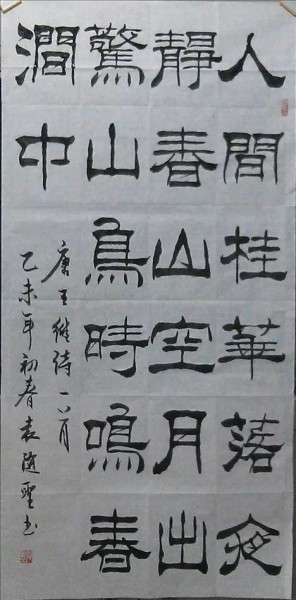 人間桂華落夜
靜春山空月出
驚山鳥時鳴春
澗中
唐王維詩一首
乙未年初春袁随聖书